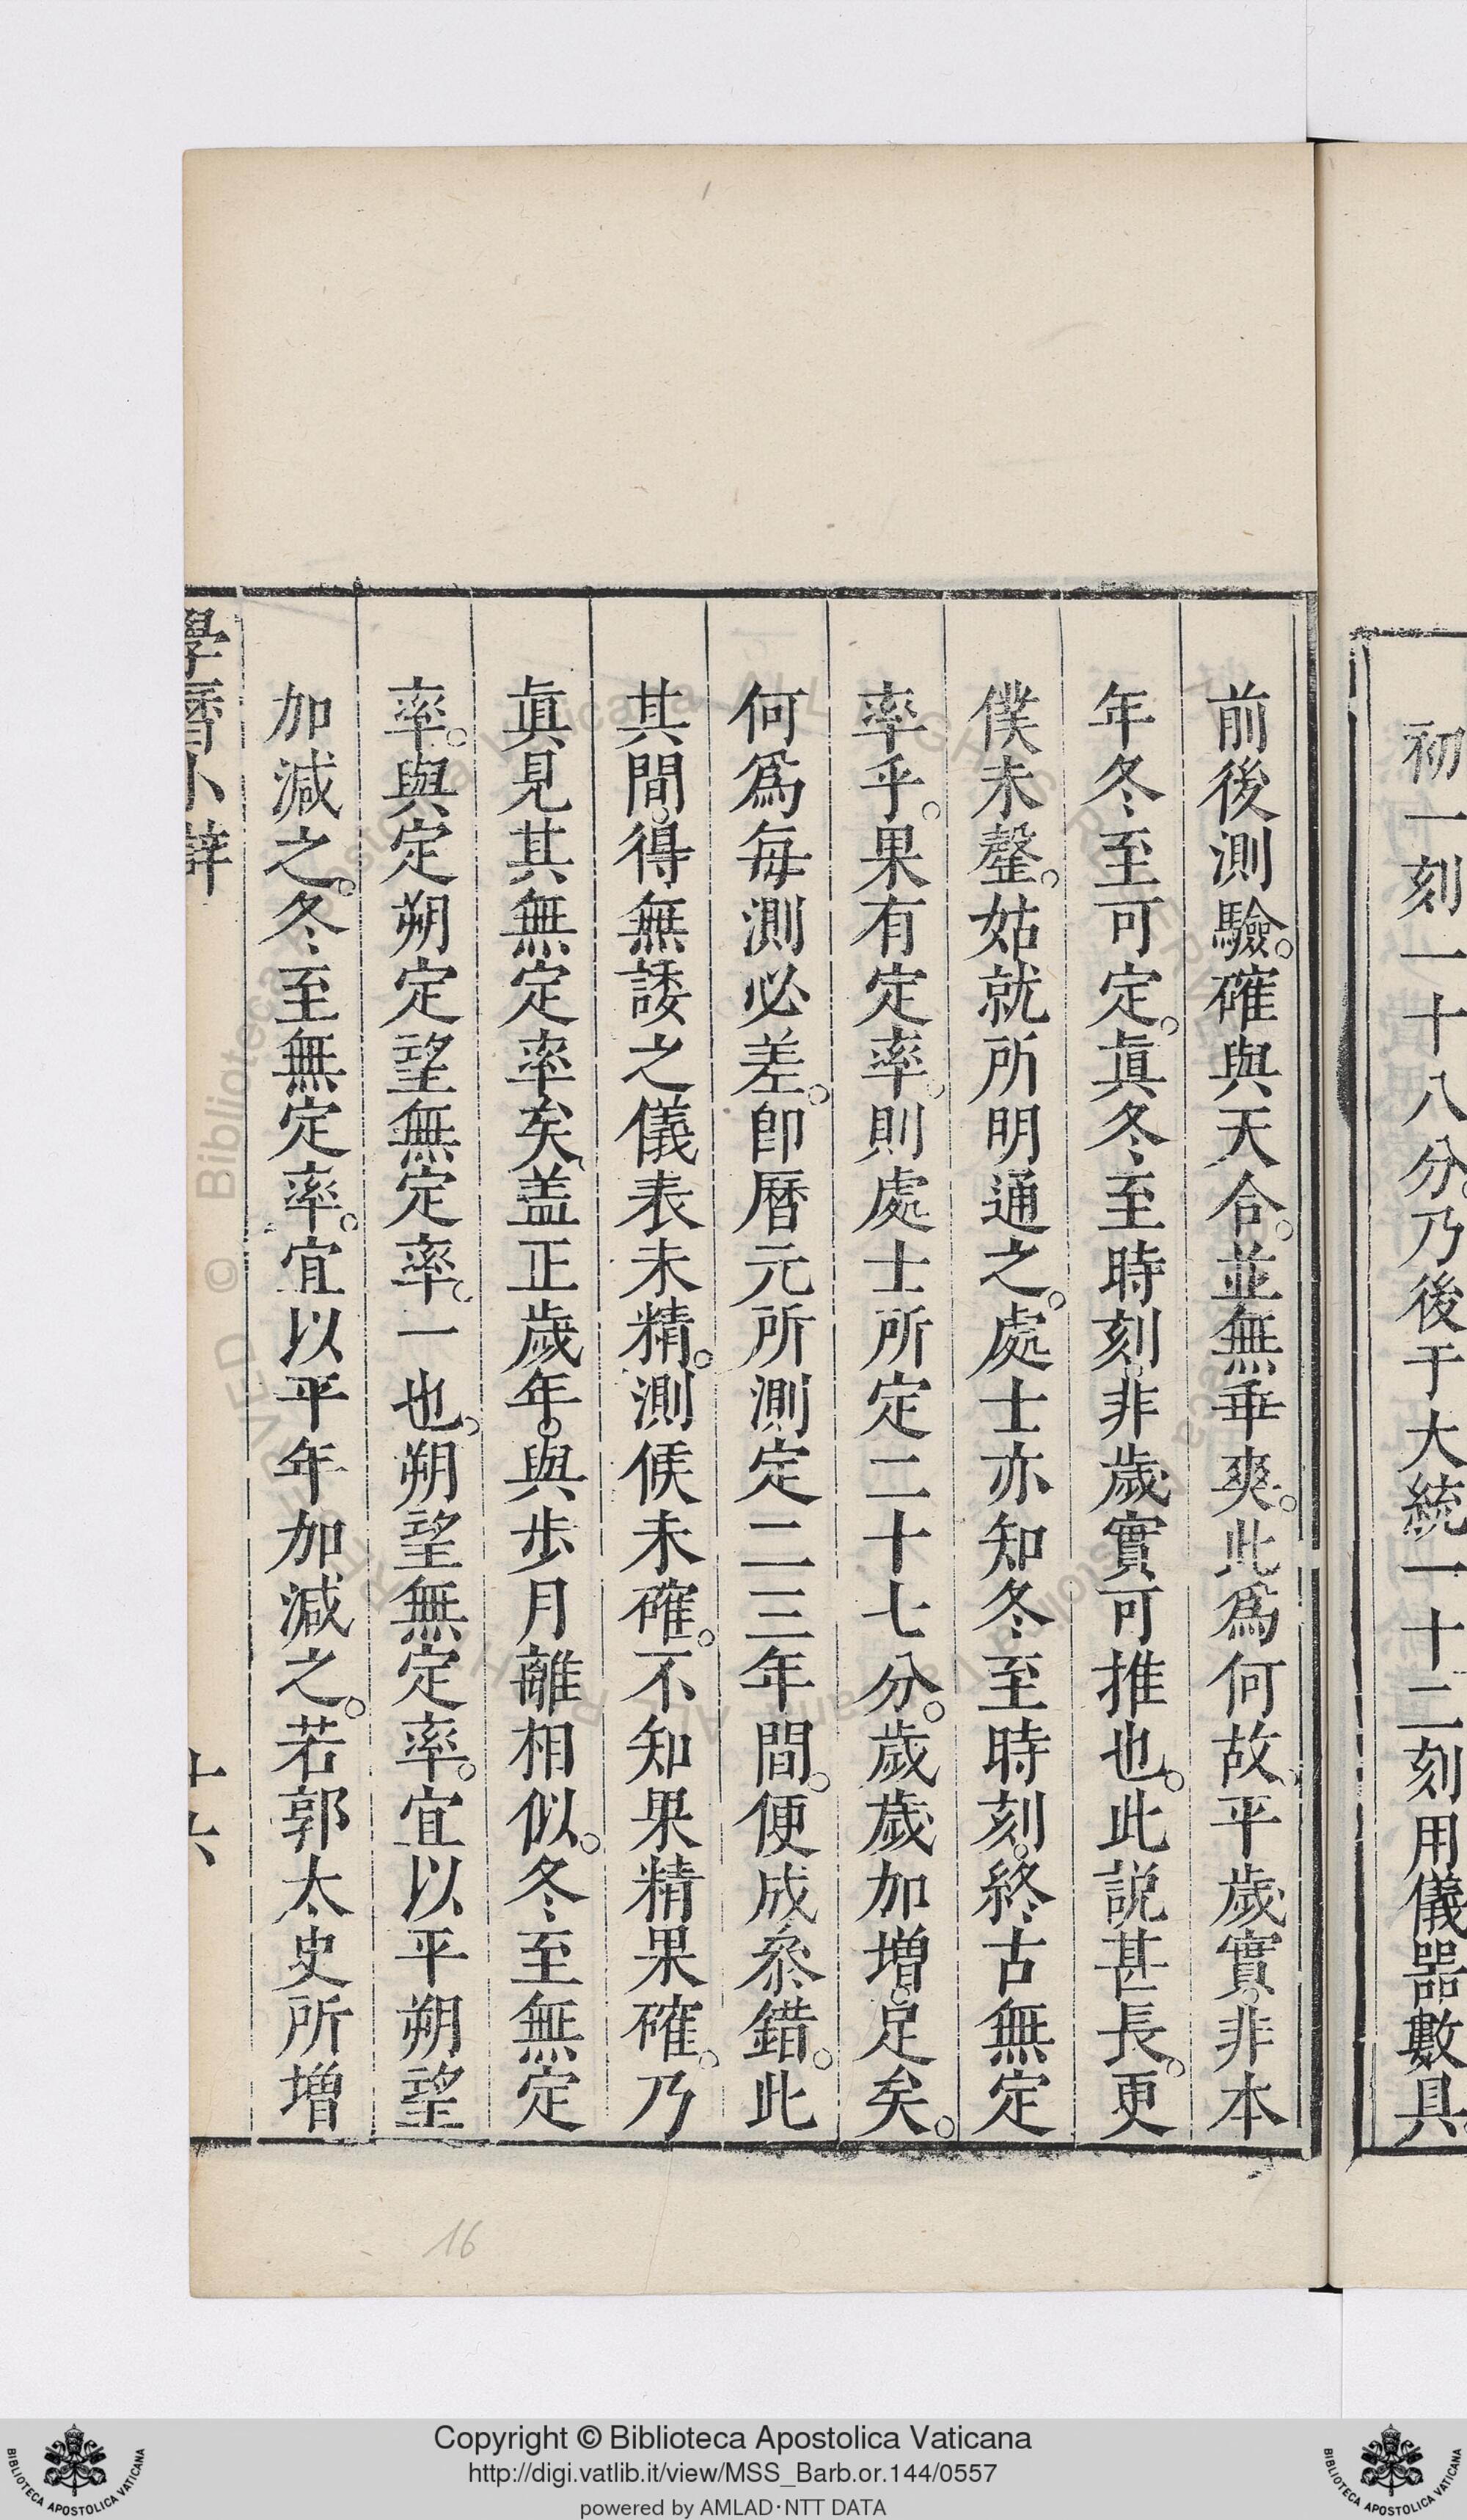 初一刻一十八分。乃後于大統一十二刻用儀器數具。
前後測驗。確與天合。並無乖爽。此爲何故、平歲實。非本
年冬至可定。眞冬至時刻。非歲實可推也。此說甚長。更
僕未罄。姑就所明通之。處士亦知冬至時刻。終古無定
率乎。果有定率。則處士所定二十七分。歲歲加增。足矣。
何爲每測必差。卽曆元所測定二三年間。便成叅錯。此
其間。得無諉之儀表未精。測候未確。不知果精果確。乃
眞見其無定率矣、盖正歲年。與步月離相似。冬至無定
率。與定朔定望無定率。一也。朔望無定率。宜以平朔望
加減之。冬至無定率。宜以平年加減之。若郭太史所增
學曆小辯
十六
16
Copyright © Biblioteca Apostolica Vaticana
http://digi.vatlib.it/view/MSS_Barb.or.144/0557
powered by AMLAD·NTT DATA
BIBLIOTECA APOSTOLICA VATICANA
BIBLIOTECA APOSTOLICA VATICANA